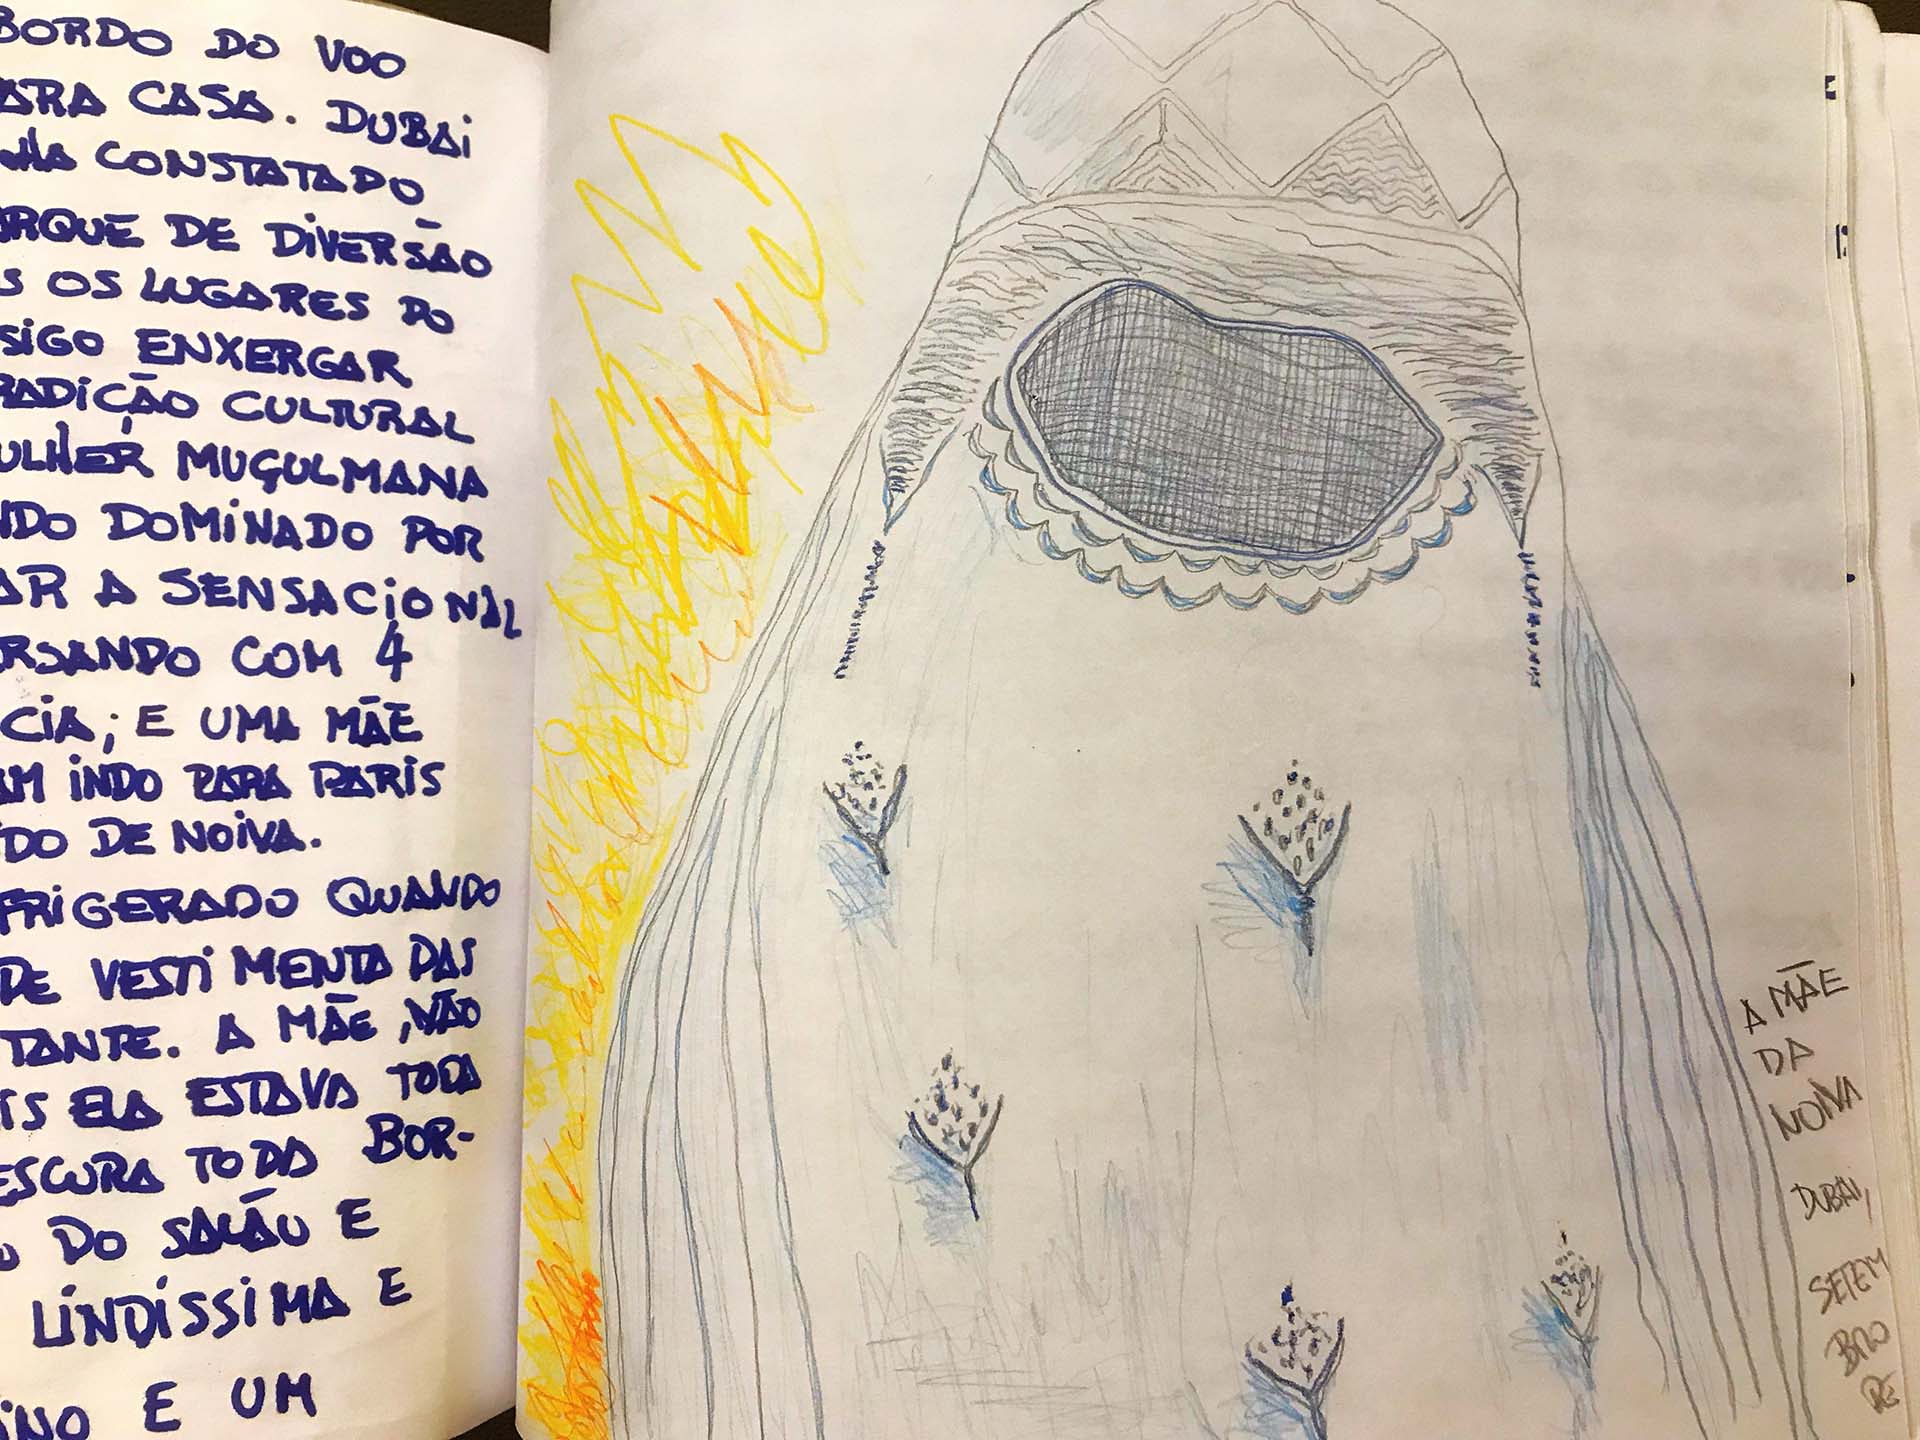 BORDO DO VOO
ARA CASA. DUBAI
HA CONSTATADO
ARQUE DE DIVERSÃO
S OS LUGARES DO
SIGO ENXERGAR
RADIÇÃO CULTURAL
ULHER MUÇULMANA
NDO DOMINADO POR
AR A SENSACIONAL
RSANDO COM 4
CIA; E UMA MÃE
AM INDO PARA PARIS
DO DE NOIVA.
FRIGERADO QUANDO
DE VESTIMENTA DAS
TANTE. A MÃE, NÃO
IS ELA ESTAVA TODA
ESCURA TODA BOR-
DO SALÃO E
LINDÍSSIMA E
INO E UM
A MÃE
DA
NOIVA
DUBAI,
SETEM
BRO